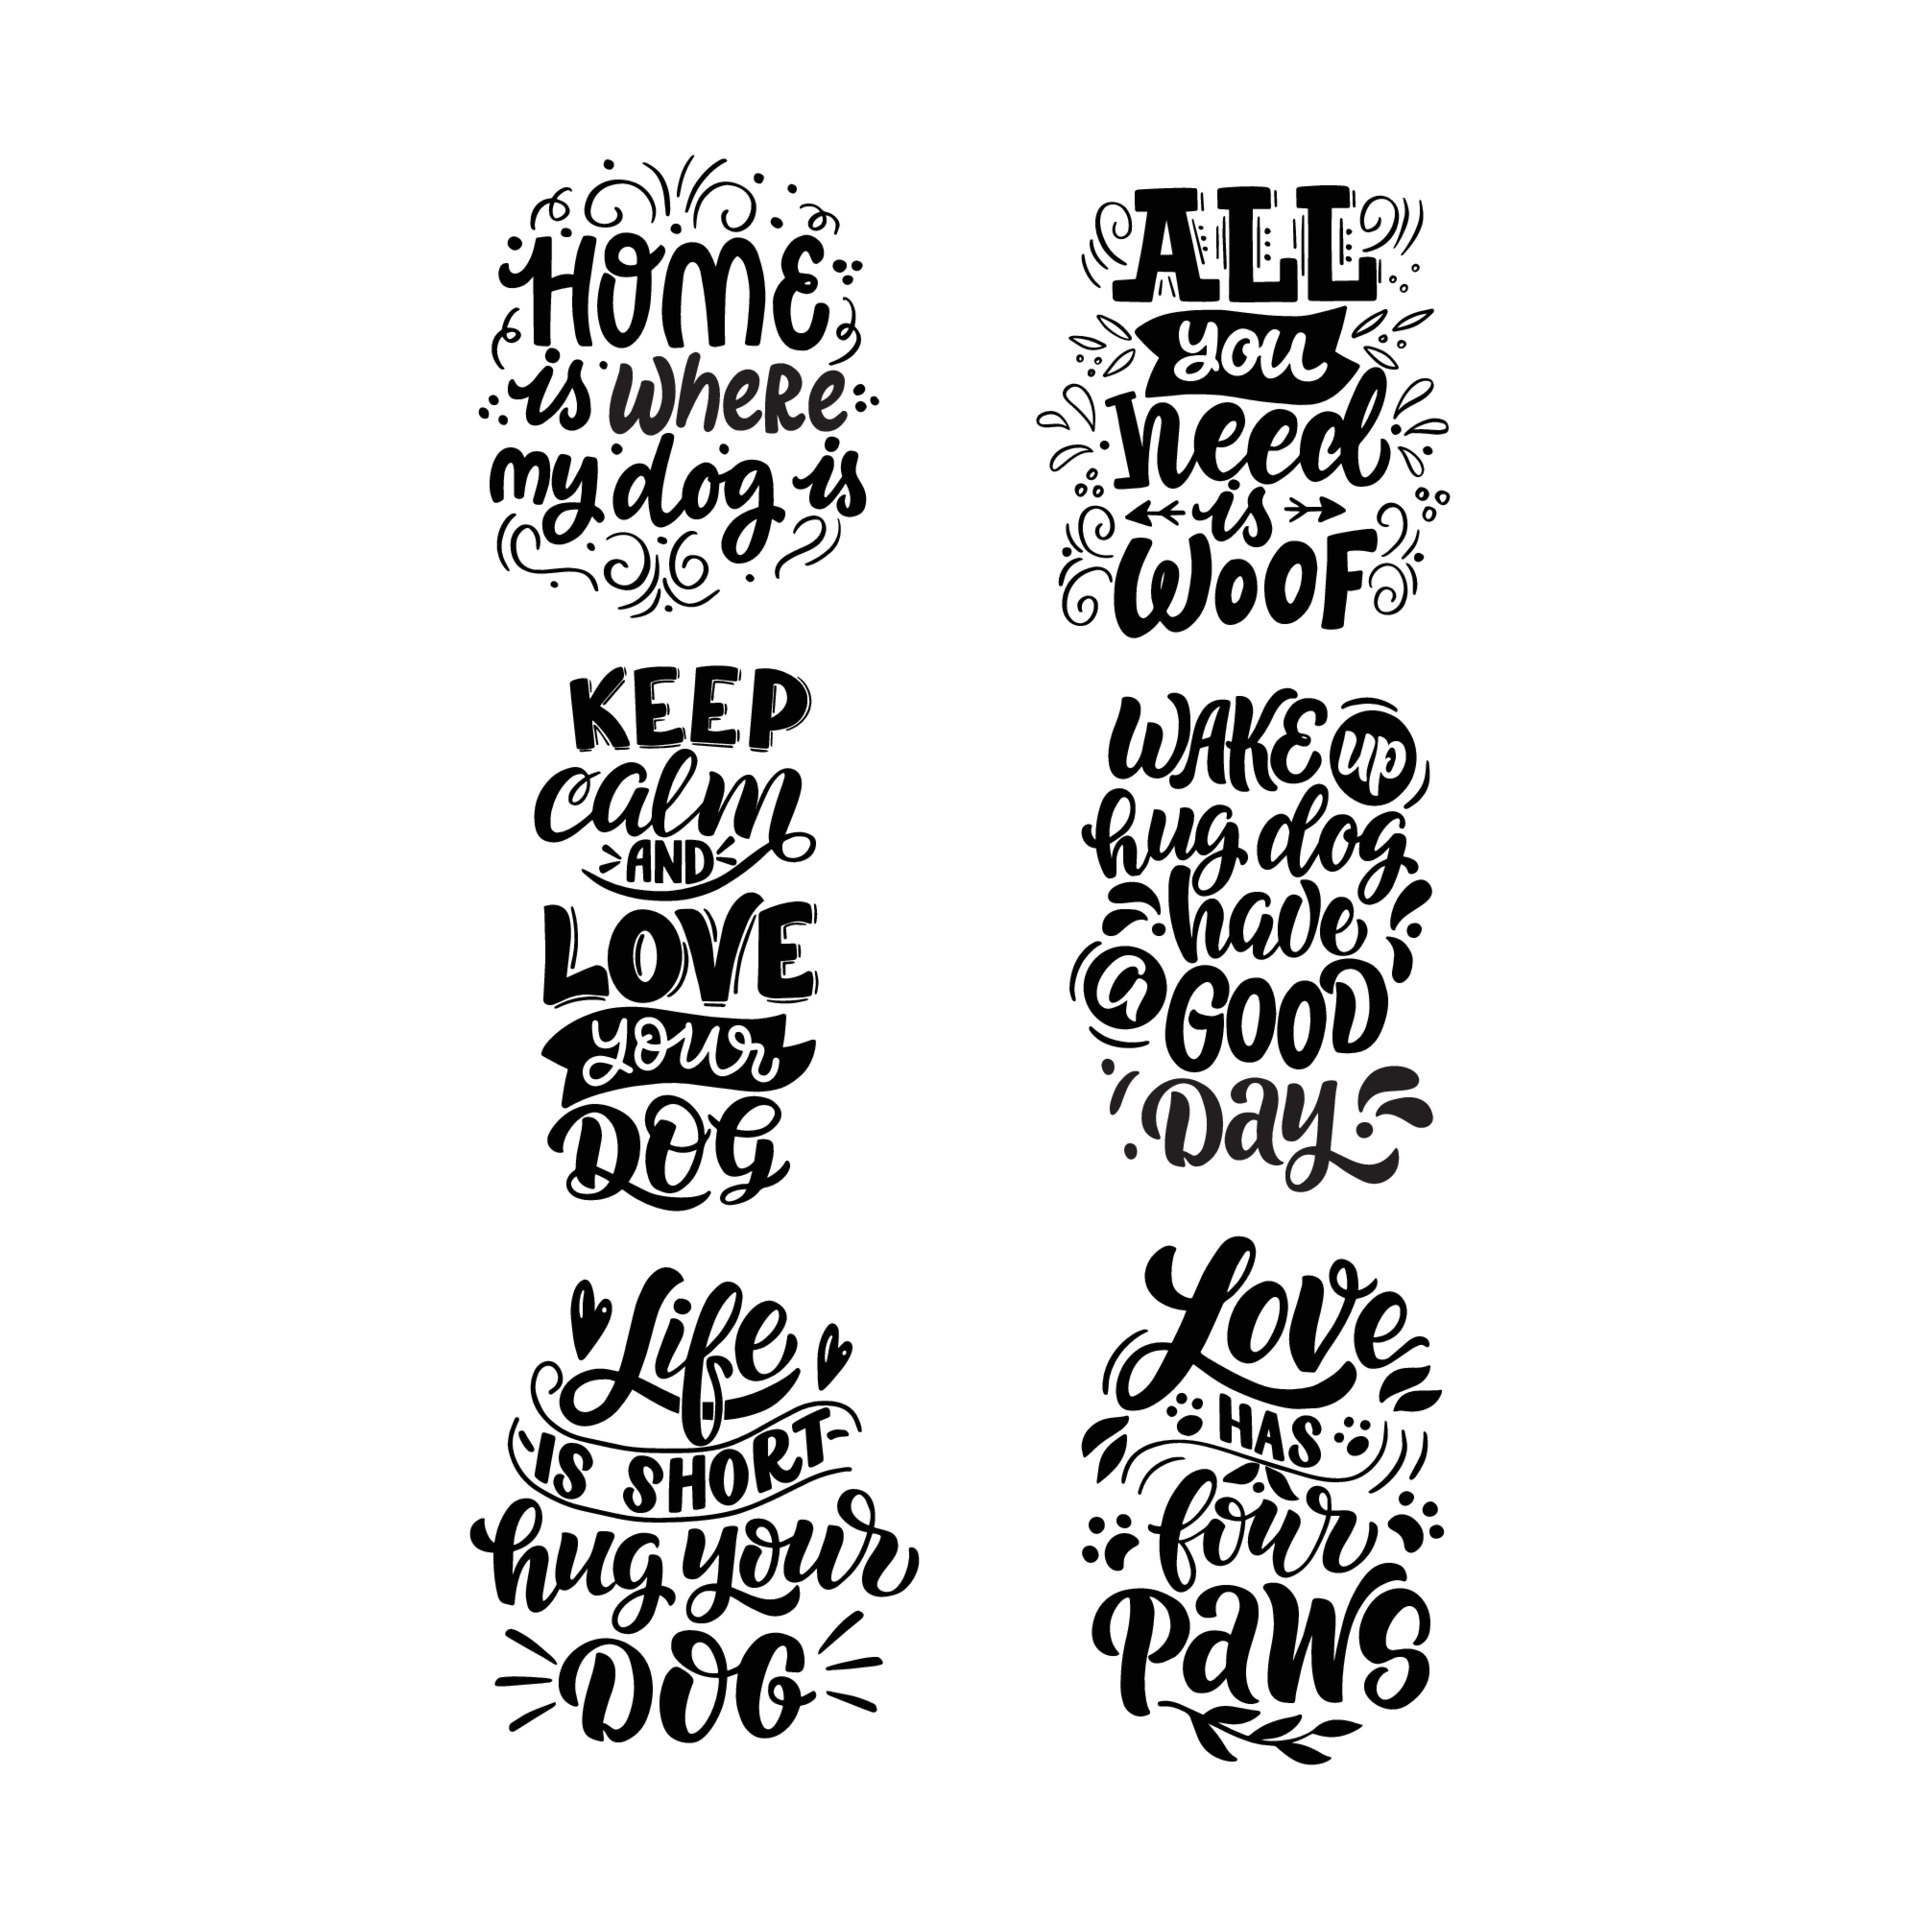 HOME
is where
my dog is
ALL
you
need
is
WOOF
KEEP
calm
AND
LOVE
your
DOG
WAKE up
hug dog
have
a GOOD
Day
Life
IS SHORT
hug your
DOG
Love
HAS
four
PaWS